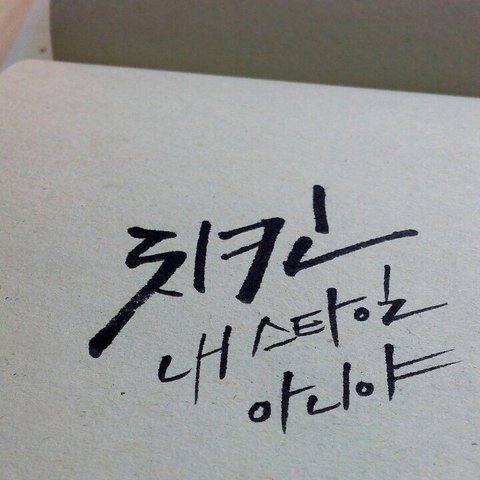 치킨
내 스타일
아니야